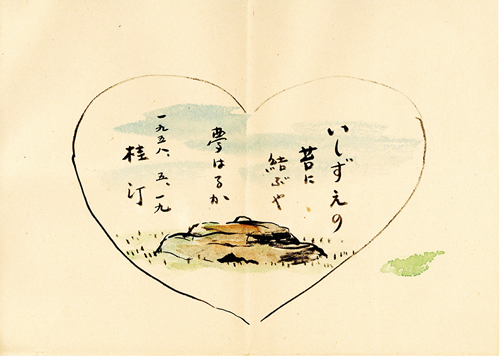 いしずえの
昔に
結ぶや
夢はるか
一九五八、五、一九
桂汀